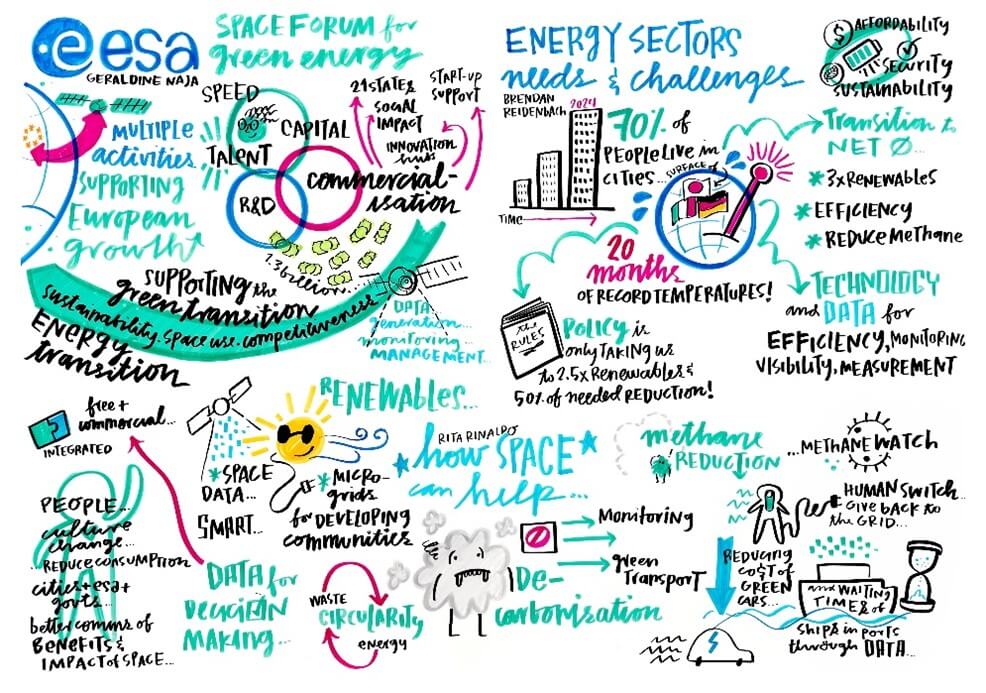 esa
SPACE FORUM for
green energy
GERALDINE NAJA
SPEED
CAPITAL
TALENT
R&D
21 STATES
& SOCIAL
IMPACT
INNOVATION
hubs
START-UP
SUPPORT
commercial-
isation
MULTIPLE
activities
SUPPORTING
European
growth
SUPPORTING the
green transition
sustainability. space use. competitiveness
ENERGY
transition
DATA
generation...
monitoring
MANAGEMENT...
ENERGY SECTORS
needs & challenges
BRENDAN
REIDENBACH
2024
TIME
70% of
PEOPLE LIVE in
CITIES...
SURFACE of
JULY
$ AFFORDABILITY
SECURITY
SUSTAINABILITY
Transition to
NET 0...
* 3x RENEWABLES
* EFFICIENCY
* REDUCE METHANE
20
months
OF RECORD TEMPERATURES!
the
RULES
POLICY is
only TAKING us
to 2.5x Renewables &
50% of needed REDUCTION!
TECHNOLOGY
and DATA for
EFFICIENCY, MONITORING
VISIBILITY, MEASUREMENT
free +
commercial...
INTEGRATED
RENEWABLES...
* SPACE
DATA...
SMART...
* MICRO-
grids
for DEVELOPING
communities
PEOPLE...
culture
change...
REDUCE CONSUMPTION
cities + esa +
govts...
better comms of
BENEFITS &
IMPACT of SPACE...
DATA for
DECISION
MAKING...
WASTE
CIRCULARITY
energy
RITA RINALDO
*how SPACE*
can help...
Monitoring
green
TRANSPORT
De-
carbonisation
methane
REDUCTION
...METHANE WATCH
HUMAN SWITCH...
GIVE BACK to
the GRID...
REDUCING
COST OF
GREEN
CARS...
and WAITING
TIMES of
SHIPS in PORTS
through DATA...